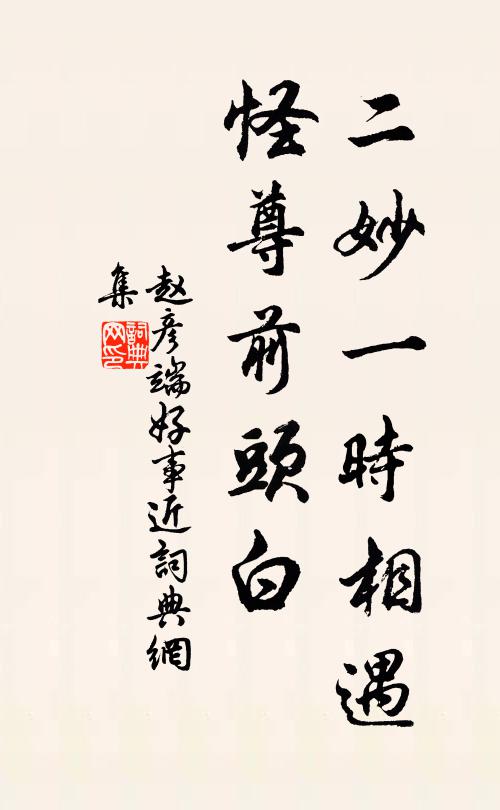 二妙一時相遇
怪尊前頭白
赵彦端好事近詞典網
集
詞典
网印